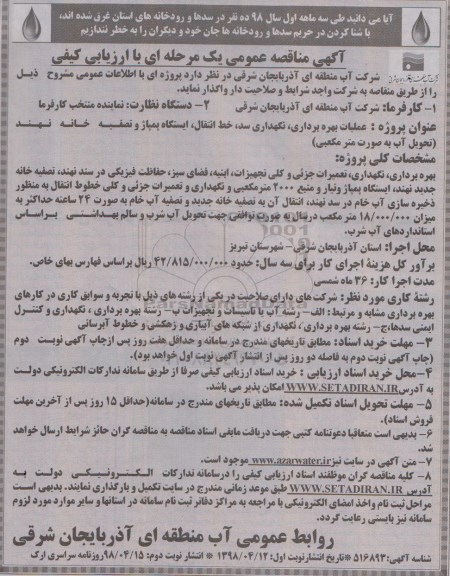 آیا می دانید طی سه ماهه اول سال ۹۸ ده نفر در سدها و رودخانه های استان غرق شده اند،
با شنا کردن در حریم سدها و رودخانه ها جان خود و دیگران را به خطر نندازیم
آگهی مناقصه عمومی یک مرحله ای با ارزیابی کیفی
شرکت آب منطقه ای آذربایجان شرقی در نظر دارد پروژه ای با اطلاعات عمومی مشروح ذیل
را از طریق مناقصه به شرکت واجد شرایط و صلاحیت دار واگذار نماید.
۱- کارفرما: شرکت آب منطقه ای آذربایجان شرقی ۲- دستگاه نظارت: نماینده منتخب کارفرما
عنوان پروژه : عملیات بهره برداری، نگهداری سد، خط انتقال، ایستگاه پمپاژ و تصفیه خانه نهند
(تحویل آب به صورت متر مکعبی)
مشخصات کلی پروژه:
بهره برداری، نگهداری، تعمیرات جزئی و کلی تجهیزات، ابنیه، فضای سبز، حفاظت فیزیکی در سد نهند، تصفیه خانه
جدید نهند، ایستگاه پمپاژ ونیار و منبع ۲۰۰۰ مترمکعبی و نگهداری و تعمیرات جزئی و کلی خطوط انتقال به منظور
ذخیره سازی آب خام در سد نهند، انتقال آن به تصفیه خانه جدید و تصفیه آب خام به صورت ۲۴ ساعته حداکثر به
میزان ۱۸/۰۰۰/۰۰۰ متر مکعب درسال به صورت توافقی جهت تحویل آب شرب و سالم بهداشتی براساس
استانداردهای آب شرب.
محل اجرا: استان آذربایجان شرقی – شهرستان تبریز
برآورد کل هزینۀ اجرای کار برای سه سال: حدود ۴۲/۸۱۵/۰۰۰/۰۰۰ ریال براساس فهارس بهای خاص.
مدت اجرا کار: ۳۶ ماه شمسی
رشتۀ کاری مورد نظر: شرکت های دارای صلاحیت در یکی از رشته های ذیل با تجربه و سوابق کاری در کارهای
بهره برداری مشابه و مرتبط : الف- رشته آب یا تاسیسات و تجهیزات ب- رشته بهره برداری ، نگهداری و کنترل
ایمنی سدها،ج- رشته بهره برداری، نگهداری از شبکه های آبیاری و زهکشی و خطوط آبرسانی
۳- مهلت خرید اسناد: مطابق تاریخهای مندرج در سامانه و حداقل هفت روز پس ازچاپ آگهی نوبت دوم
(چاپ آگهی نوبت دوم به فاصله دو روز پس از انتشار آگهی نوبت اول خواهد بود).
۴- محل خرید اسناد ارزیابی : خرید اسناد ارزیابی کیفی صرفا از طریق سامانه تدارکات الکترونیکی دولت
به آدرس WWW.SETADIRAN.IR امکان پذیر می باشد.
۵- مهلت تحویل اسناد تکمیل شده: مطابق تاریخهای مندرج در سامانه(حداقل ۱۵ روز پس از آخرین مهلت
فروش اسناد).
۶- بدیهی است متعاقبا دعوتنامه کتبی جهت دریافت مابقی اسناد مناقصه به مناقصه گران حائز شرایط ارسال خواهد
شد.
۷- متن آگهی در سایت نیز www.azarwater.ir موجود است.
۸- کلیه مناقصه گران موظفند اسناد ارزیابی کیفی را درسامانه تدارکات الکترونیکی دولت به
آدرس WWW.SETADIRAN.IR طبق موعد زمانی مندرج در سایت تکمیل و بارگذاری نمایند. بدیهی است
مراحل ثبت نام واخذ امضای الکترونیکی با مراجعه به مراکز دفاتر ثبت نام سامانه در استانها و سایر موارد مورد لزوم
سامانه نیز بایستی رعایت گردد.
روابط عمومی آب منطقه ای آذربایجان شرقی
شناسه آگهی: ۵۱۶۸۹۳ *تاریخ انتشارنوبت اول: ۱۳۹۸/۰۴/۱۲ * انتشار نوبت دوم: ۹۸/۰۴/۱۵ روزنامه سراسری ارک